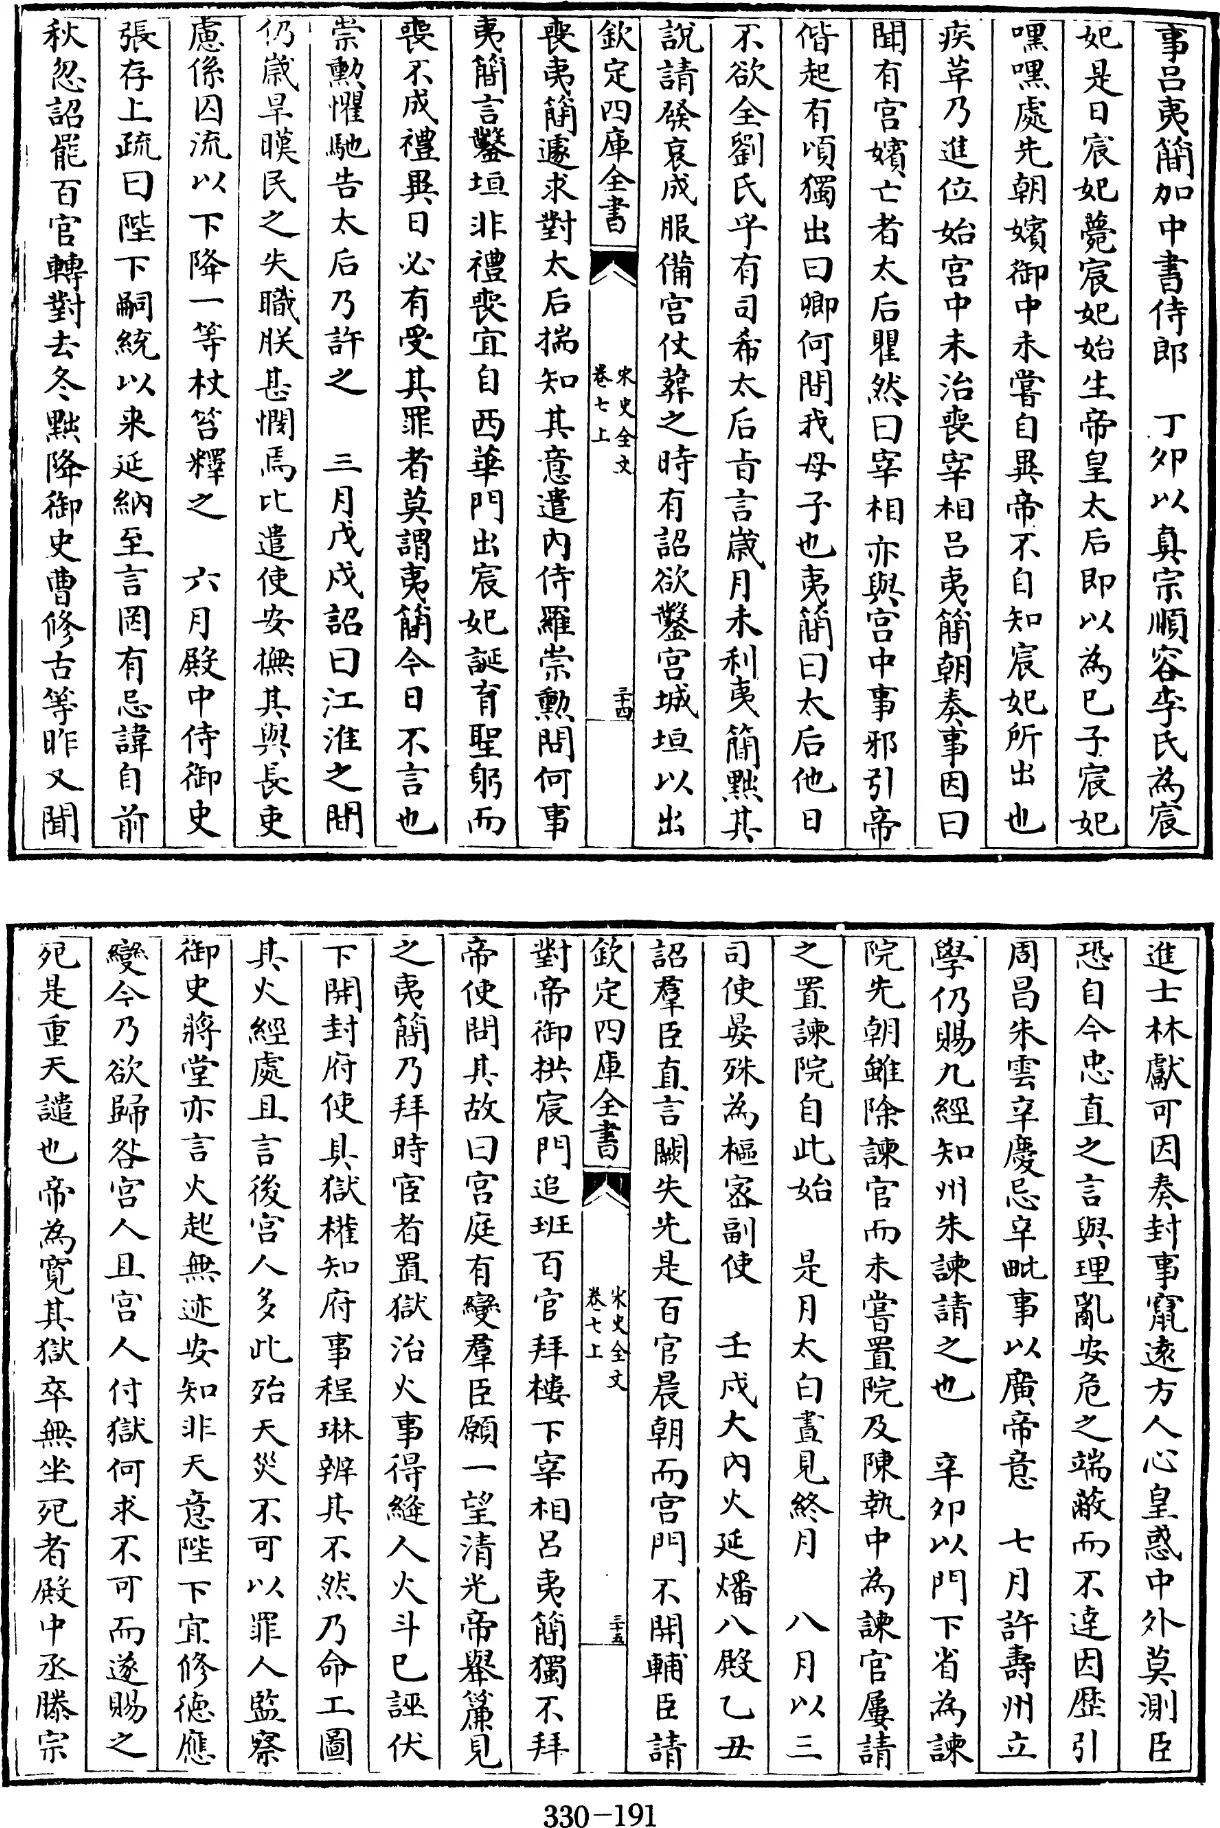 事呂夷簡加中書侍郎　丁卯以真宗順容李氏為宸
妃是日宸妃薨宸妃始生帝皇太后即以為己子宸妃
嘿嘿處先朝嬪御中未嘗自異帝不自知宸妃所出也
疾革乃進位始宫中未治喪宰相呂夷簡朝奏事因曰
聞有宫嬪亡者太后瞿然曰宰相亦與宫中事邪引帝
偕起有頃獨出曰卿何間我母子也夷簡曰太后他日
不欲全劉氏乎有司希太后㫖言歲月未利夷簡黜其
說請發哀成服備宫仗葬之時有詔欲鑿宫城垣以出
欽定四庫全書　宋史全文　卷七上　三十四
喪夷簡遽求對太后揣知其意遣内侍羅崇勲問何事
夷簡言鑿垣非禮喪宜自西華門出宸妃誕育聖躬而
喪不成禮異日必有受其罪者莫謂夷簡今日不言也
崇勲懼馳告太后乃許之　三月戊戌詔曰江淮之間
仍歲旱暵民之失職朕甚憫焉比遣使安撫其與長吏
慮係囚流以下降一等杖笞釋之　六月殿中侍御史
張存上疏曰陛下嗣統以來延納至言罔有忌諱自前
秋忽詔罷百官轉對去冬黜降御史曹修古等昨又聞
進士林獻可因奏封事竄遠方人心皇惑中外莫測臣
恐自今忠直之言與理亂安危之端蔽而不達因歷引
周昌朱雲辛慶忌辛毗事以廣帝意　七月許壽州立
學仍賜九經知州朱諫請之也　辛卯以門下省為諫
院先朝雖除諫官而未嘗置院及陳執中為諫官屢請
之置諫院自此始　是月太白晝見終月　八月以三
司使晏殊為樞密副使　壬戌大内火延燔八殿乙丑
詔羣臣直言闕失先是百官晨朝而宫門不開輔臣請
欽定四庫全書　宋史全文　卷七上　三十五
對帝御拱宸門追班百官拜樓下宰相呂夷簡獨不拜
帝使問其故曰宫庭有變羣臣願一望清光帝舉簾見
之夷簡乃拜時宦者置獄治火事得縫人火斗已誣伏
下開封府使具獄權知府事程琳辨其不然乃命工圖
其火經處且言後宫人多此殆天災不可以罪人監察
御史蔣堂亦言火起無迹安知非天意陛下宜修德應
變今乃欲歸咎宫人且宫人付獄何求不可而遂賜之
死是重天譴也帝為寛其獄卒無坐死者殿中丞滕宗
330-191